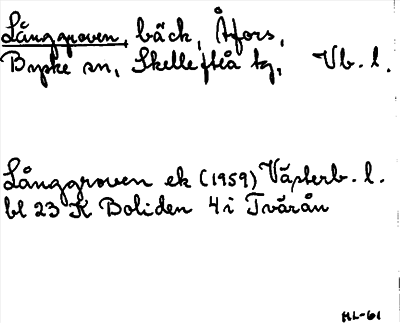 Långgroven, bäck, Åfors,
Byske sn, Skellefteå tg, Vb. l.
Långgroven ek (1959) Västerb. l.
bl 23 K Boliden 4i Tvärån
HL-61